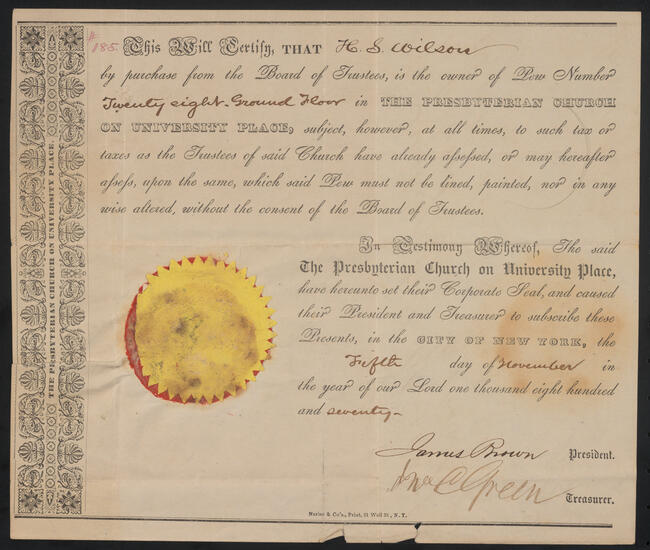 THE PRESBYTERIAN CHURCH ON UNIVERSITY PLACE.
# 185.
This Will Certify, THAT H. S. Wilson
by purchase from the Board of Trustees, is the owner of Pew Number
Twenty eight - Ground Floor in THE PRESBYTERIAN CHURCH
ON UNIVERSITY PLACE, subject, however, at all times, to such tax or
taxes as the Trustees of said Church have already aſseſsed, or may hereafter
aſseſs, upon the same, which said Pew must not be lined, painted, nor in any
wise altered, without the consent of the Board of Trustees.
In Testimony Whereof, The said
The Presbyterian Church on University Place,
have hereunto set their Corporate Seal, and caused
their President and Treasurer to subscribe these
Presents, in the CITY OF NEW YORK, the
Fifth day of November in
the year of our Lord one thousand eight hundred
and seventy -
James Brown President.
Jno C Green Treasurer.
& Co's., Print, 21 Wall St., N.Y.